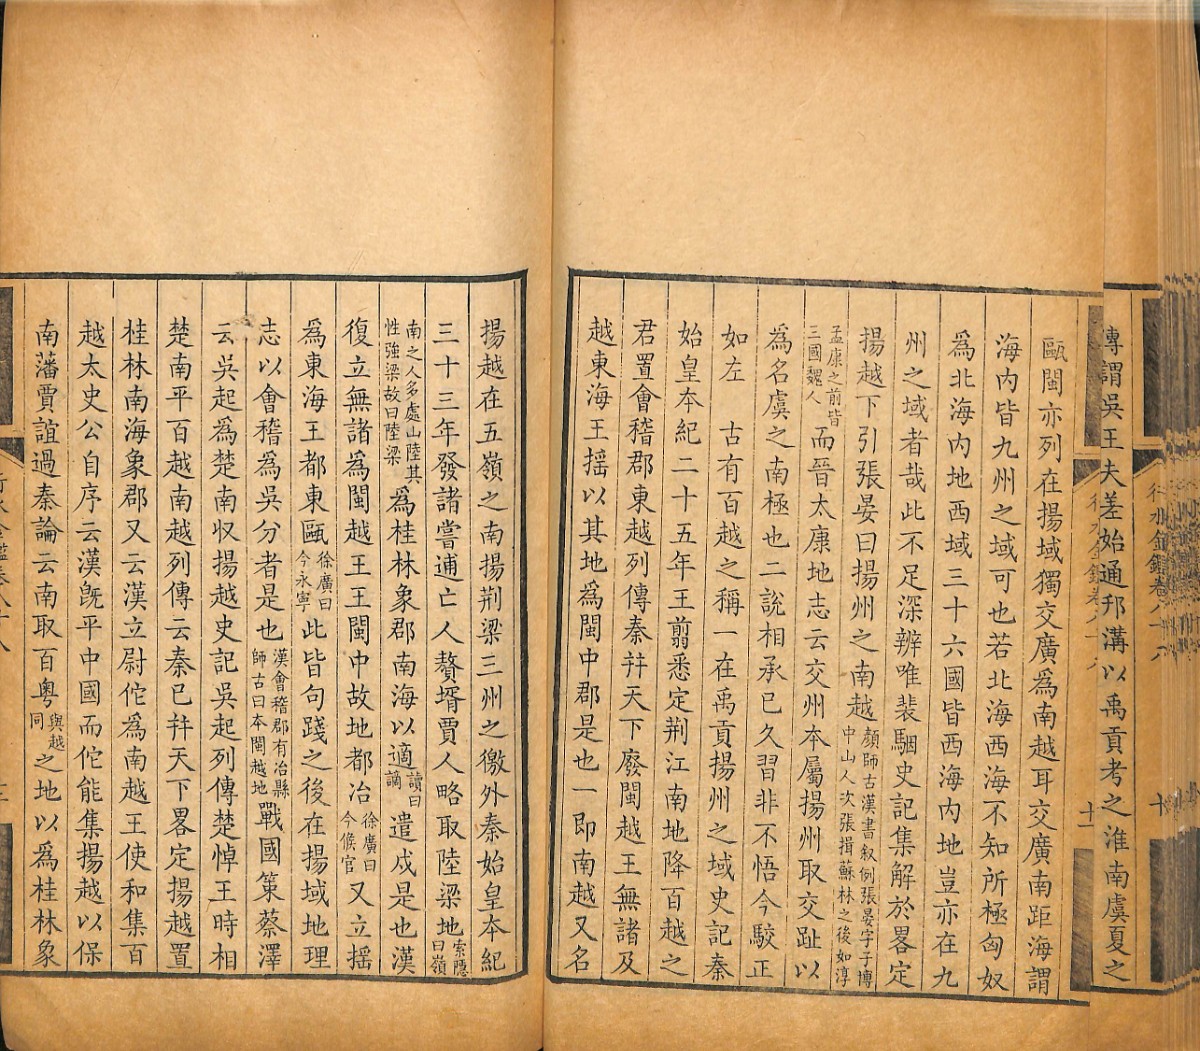 傳謂吳王夫差始通邗溝以禹貢考之淮南虞夏之
行水金鑑卷八十八
十一
甌閩亦列在揚域獨交廣爲南越耳交廣南距海謂
海内皆九州之域可也若北海西海不知所極匈奴
爲北海内地西域三十六國皆西海内地豈亦在九
州之域者哉此不足深辨唯裴駰史記集解於畧定
揚越下引張晏曰揚州之南越顔師古漢書叙例張晏字子博中山人次張揖蘇林之後如淳
孟康之前皆三國魏人而晉太康地志云交州本屬揚州取交趾以
爲名虞之南極也二說相承已久習非不悟今駮正
如左　古有百越之稱一在禹貢揚州之域史記秦
始皇本紀二十五年王翦悉定荆江南地降百越之
君置會稽郡東越列傳秦并天下廢閩越王無諸及
越東海王揺以其地爲閩中郡是也一即南越又名
揚越在五嶺之南揚荆梁三州之徼外秦始皇本紀
三十三年發諸嘗逋亡人贅壻賈人略取陸梁地索隱曰嶺
南之人多處山陸其性強梁故曰陸梁爲桂林象郡南海以適讀曰謫遣戍是也漢
復立無諸爲閩越王王閩中故地都冶徐廣曰今候官又立揺
爲東海王都東甌徐廣曰今永寧此皆句踐之後在揚域地理
志以會稽爲吳分者是也漢會稽郡有冶縣師古曰本閩越地戰國策蔡澤
云吳起爲楚南收揚越史記吳起列傳楚悼王時相
楚南平百越南越列傳云秦已并天下畧定揚越置
桂林南海象郡又云漢立尉佗爲南越王使和集百
越太史公自序云漢旣平中國而佗能集揚越以保
南藩賈誼過秦論云南取百粵與越同之地以爲桂林象